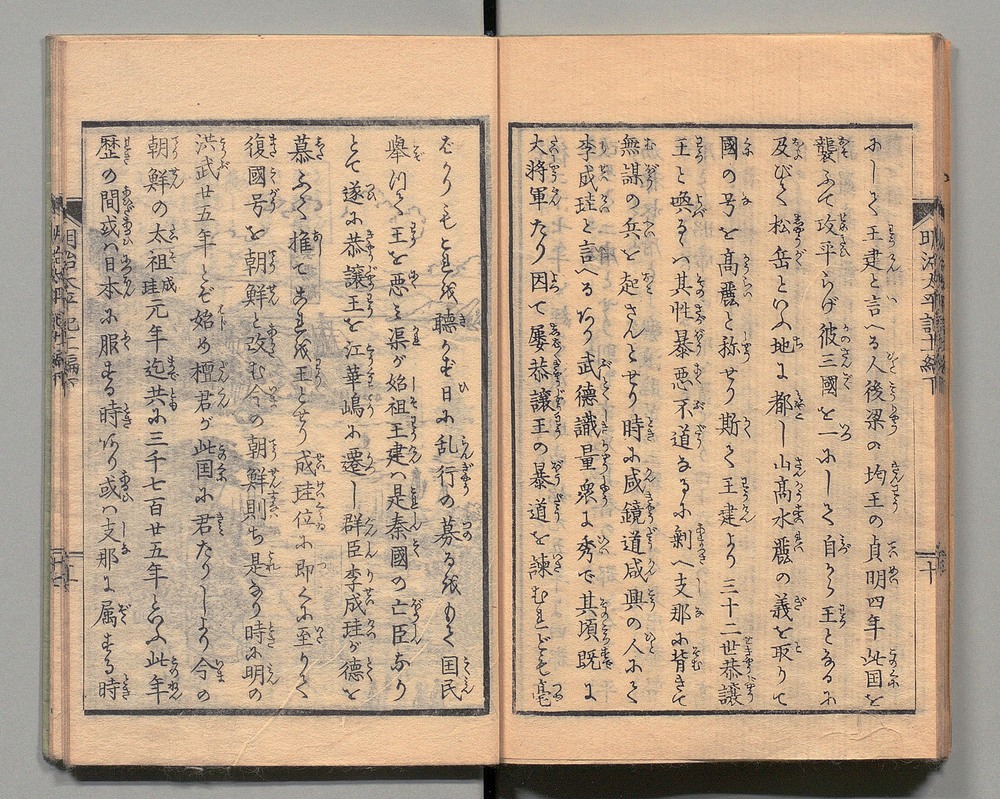 にして王建と言へる人後梁の均王の貞明四年此国を
襲ふて攻平らげ彼三國を一にして自から王となるに
及びて松岳といふ地に都し山高水麗の義を取りて
國の号を高麗と称せり斯て王建より三十二世恭讓
王と喚るハ其性暴悪不道なるに剰へ支那に背きて
無謀の兵を起さんとせり時に咸鏡道咸興の人にて
李成珪と言へるあり武徳識量衆に秀で其頃既に
大将軍たり因て屡恭讓王の暴道を諫むれども毫
ばかりもこれを聴かず日に乱行の募るをもて国民
擧りて王を悪み渠が始祖王建ハ是秦國の亡臣なり
とて遂に恭讓王を江華嶋に遷し群臣李成珪が徳を
慕ふて推てこれを王とせり成珪位に即くに至りて
復國号を朝鮮と改む今の朝鮮則ち是なり時に明の
洪武廿五年とぞ始め檀君が此国に君たりしより今の
朝鮮の太祖成珪元年迄共に三千七百廿五年といふ此年
歴の間或ハ日本に服する時あり或ハ支那に属する時
明治太平記十一編下
十一